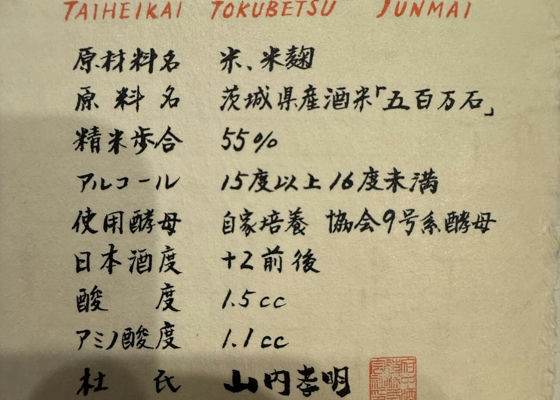 TAIHEIKAI TOKUBETSU JUNMAI
原材料名 米、米麹
原料名 茨城県産酒米「五百万石」
精米歩合 55%
アルコール 15度以上16度未満
使用酵母 自家培養 協会9号系酵母
日本酒度 +2前後
酸度 1.5cc
アミノ酸度 1.1cc
杜氏 山内孝明